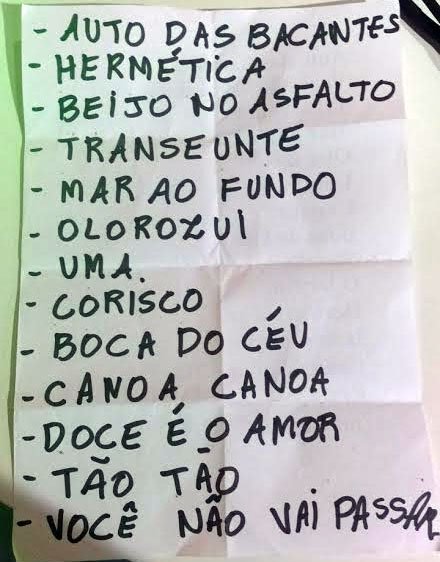 - AUTO DAS BACANTES
- HERMÉTICA
- BEIJO NO ASFALTO
- TRANSEUNTE
- MAR AO FUNDO
- OLOROXUI
- UMA.
- CORISCO
- BOCA DO CÉU
- CANOA, CANOA
- DOCE É O AMOR
- TÃO TÃO
- VOCÊ NÃO VAI PASSAR